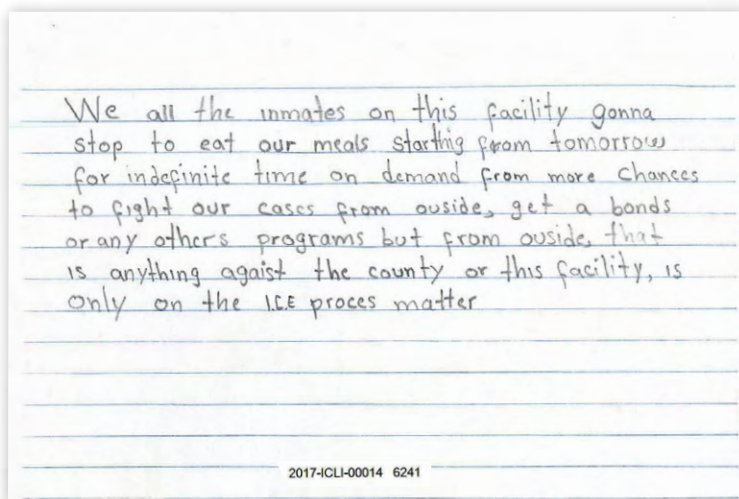 We all the inmates on this facility gonna
stop to eat our meals starting from tomorrow
for indefinite time on demand from more chances
to fight our cases from ouside, get a bonds
or any others programs but from ouside, that
is anything agaist the county or this facility, is
only on the I.C.E proces matter
2017-ICLI-00014 6241